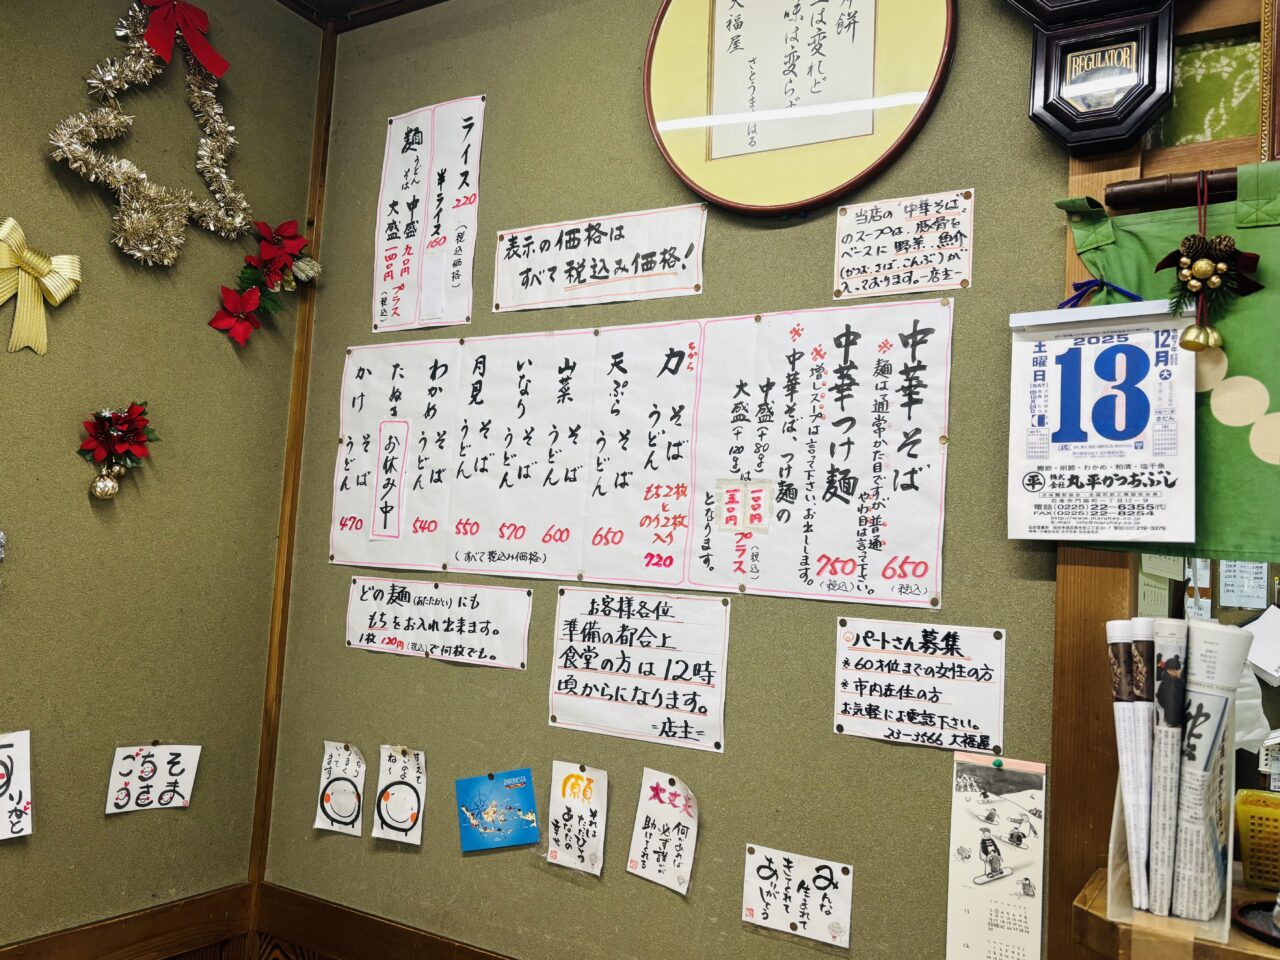 月餅
は変れど
味は変らず
大福屋
さとうまはる
REGULATOR
ライス 220
半ライス 160
(税込価格)
麺 うどん そば
中盛 九〇円 プラス
大盛 一四〇円 (税込)
表示の価格は
すべて税込み価格!
当店の"中華そば"
のスープは、豚骨を
ベースに野菜、魚介
(かつお、さば、こんぶ)が
入っております。-店主-
中華そば 650 (税込)
※麺は通常かた目ですが普通
やわ目は言って下さい。
中華つけ麺 750 (税込)
※増しスープは言って下さいお出しします。
※中華そば、つけ麺の
中盛(+80g)は 一〇〇円
大盛(+120g)は 一五〇円
プラス (税込)
となります。
力 ちから そば うどん もち2枚とのり2枚入り 720
天ぷら そば うどん 650
山菜 そば うどん 600
いなり そば うどん 570
月見 そば うどん 550
わかめ そば うどん 540
たぬき お休み中
かけ そば うどん 470
(すべて税込み価格)
どの麺(あたたかい)にも
もちをお入れ出来ます。
1枚120円(税込)で何枚でも。
お客様各位
準備の都合上
食堂の方は12時
頃からになります。
=店主=
パートさん募集
※60才位までの女性の方
※市内在住の方
お気軽にお電話下さい。
23-3566 大福屋
2025
12月
大
土曜日
SAT
13
鰹節・削節・わかめ・粕漬・塩干魚
平 株式会社 丸平かつおぶし
石巻市門脇町一丁目12-9
電話(0225)22-6355(代)
FAX(0225)22-8254
http://www.maruhey.co.jp
E-mail info@maruhey.co.jp
ごちそうさま
INDONESIA
願
それは
ただひとつ
あなたの
幸せ
大丈夫
何かあれば
必ず誰かが
助けてくれる
みんな
生まれて
きてくれて
ありがとう